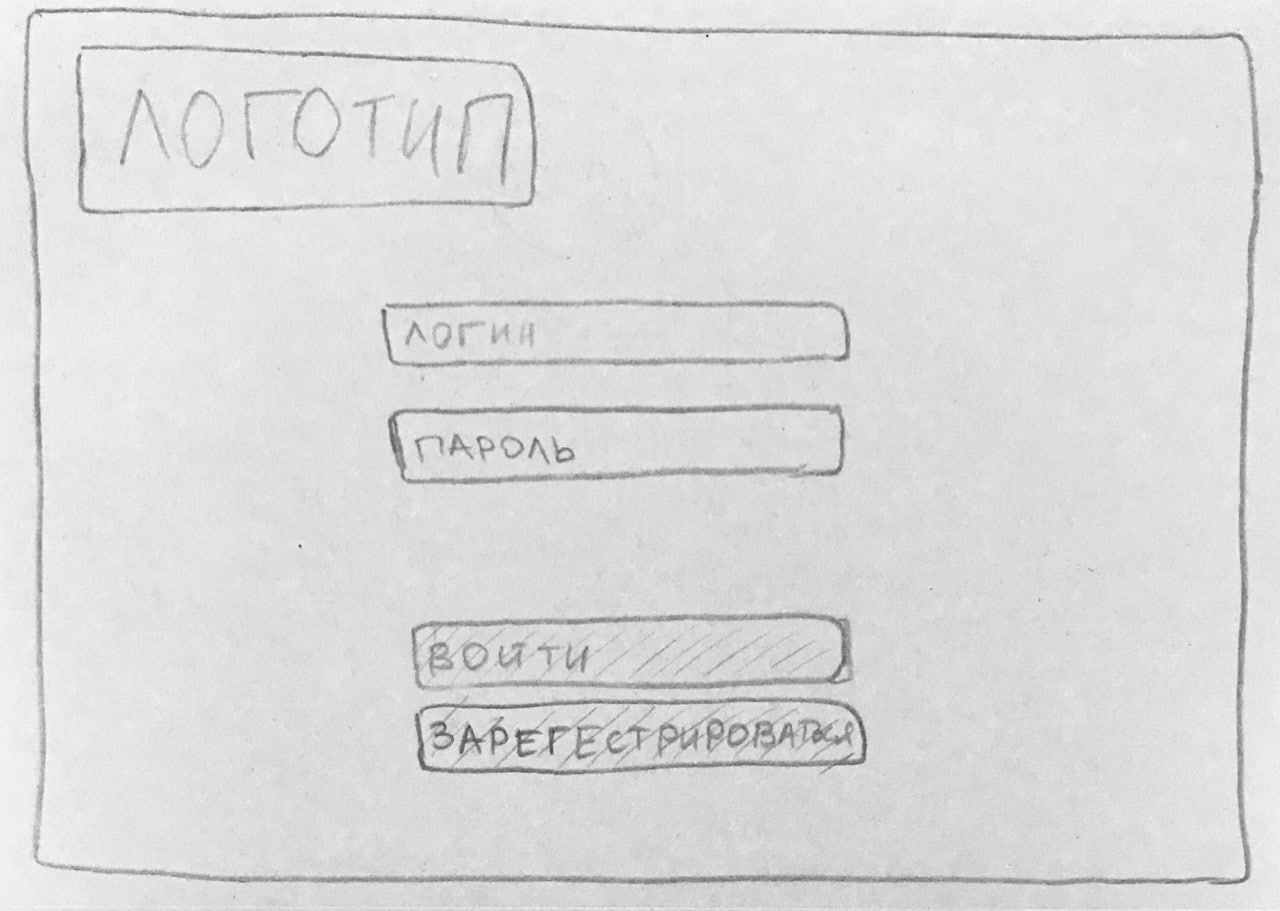 ЛОГОТИП
ЛОГИН
ПАРОЛЬ
ВОЙТИ
ЗАРЕГЕСТРИРОВАТЬСЯ